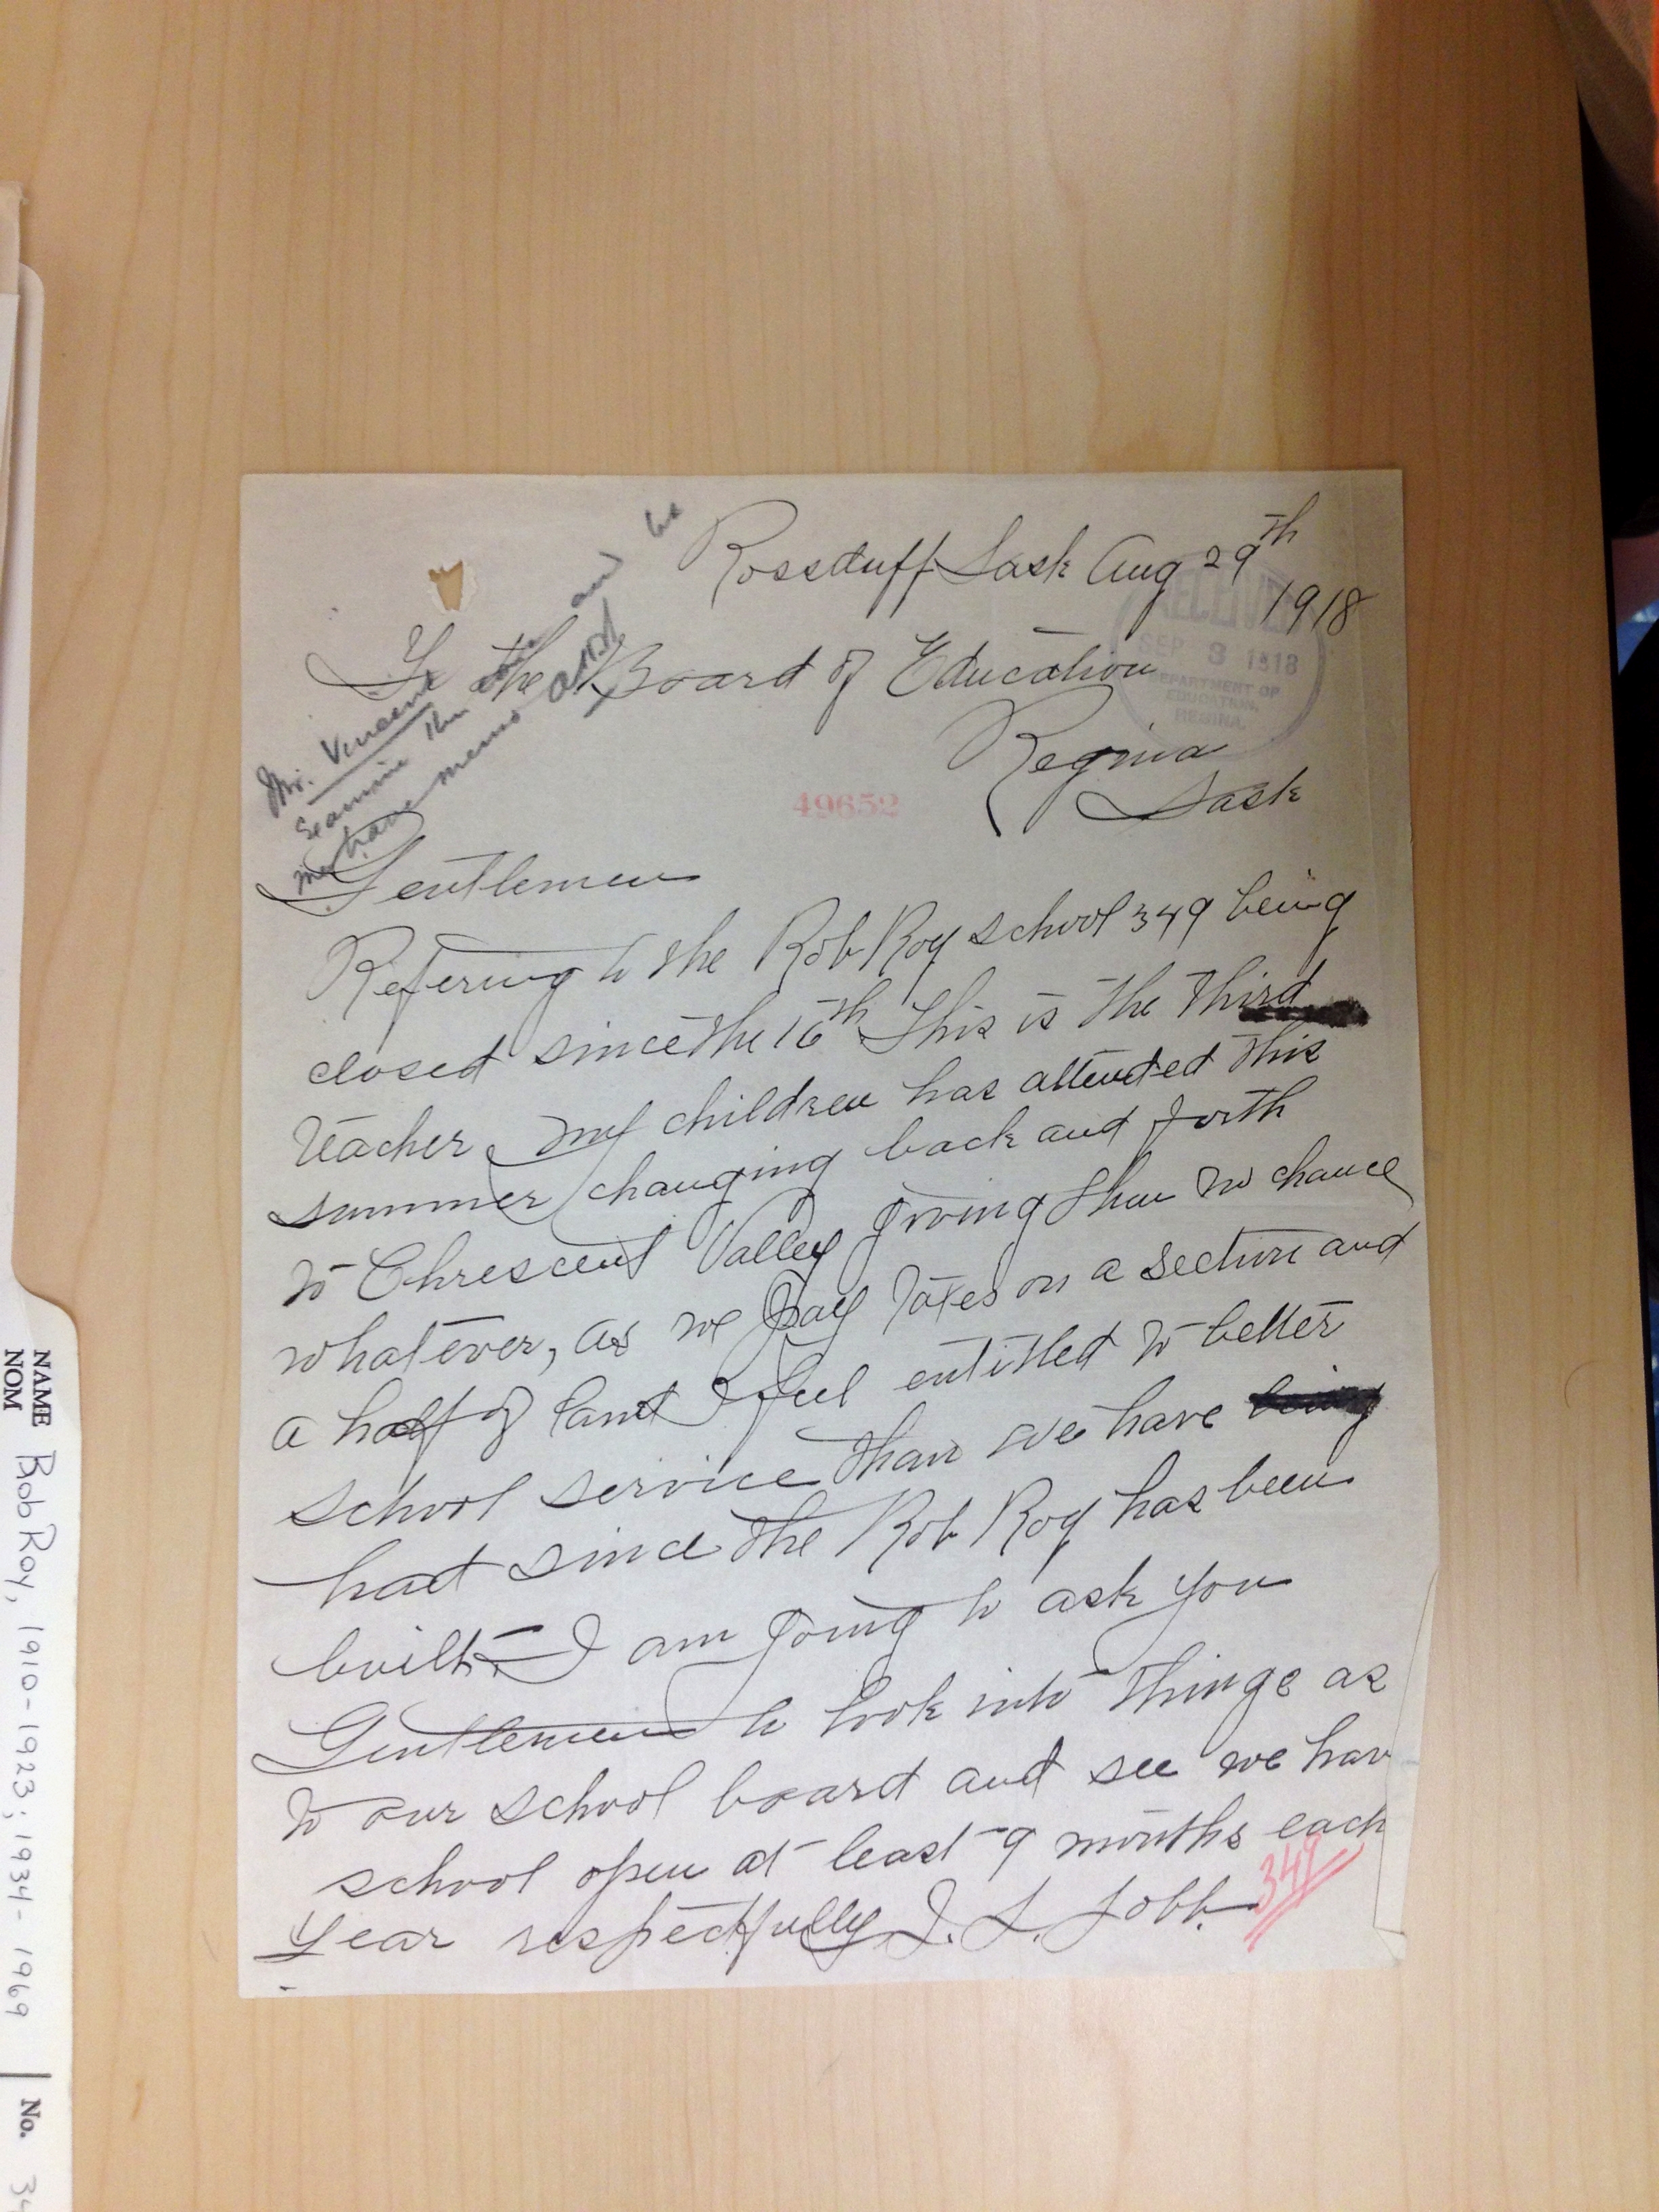 Rossduff Sask Aug 29th
1918
RECEIVED
SEP 3 1918
DEPARTMENT OF
EDUCATION,
REGINA.
To the Board of Education
Regina
Sask
49652
Mr. Vincent
Examine the and
let me have memo
Gentlemen
Refering to the Rob Roy school 349 being
closed since the 16th This is the third
teacher my children has attended this
summer changing back and forth
to Chrescent Valley giving them no chance
whatever, as we pay taxes on a section and
a half of land I feel entitled to better
school service than we have being
had since the Rob Roy has been
built. I am going to ask you
Gentlemen to look into things as
to our school board and see we hav
school open at least 9 months each
year respectfully J. L. Jobb.
349
NAME
NOM
Bob Roy, 1910-1923; 1934-1969
No.